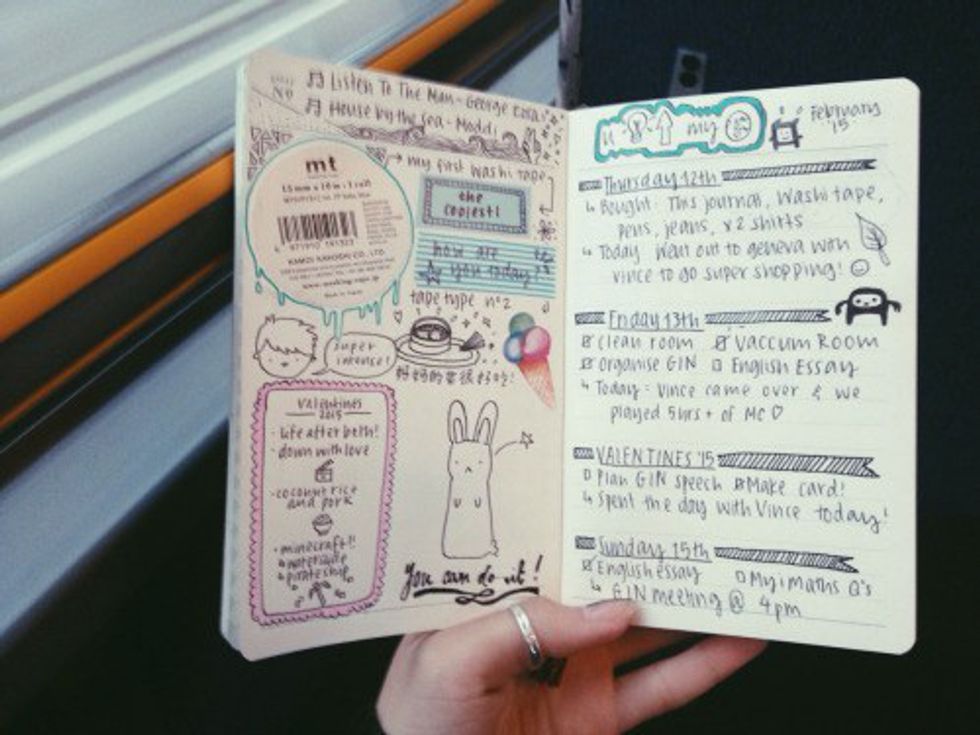 ♫ Listen To The Man - George Ezra
♫ House by the Sea - Moddi
→ my first washi tape
mt
15 mm x 10 m · 1 roll
4 971910 181323
KAMOI KAKOSHI CO., LTD
the coolest!
how are
☆ you today
tape type n°2
super
intense!
好好的
很好吃!
Valentines
2015
· life after beth!
· down with love
· coconut rice
and pork
· minecraft!!
↳ waterslide
↳ pirateship
You can do it!
u my
February
'15
Thursday 12th
↳ Bought: This journal, washi tape,
pens, jeans, x2 shirts
↳ Today went out to geneva with
vince to go super shopping! ☺
Friday 13th
☑ clean room ☑ Vaccum Room
☑ Organise GIN ☐ English Essay
↳ Today: Vince came over & we
played 5hrs + of MC ♡
VALENTINES '15
☐ Plan GIN speech ☑ Make card!
↳ Spent the day with Vince today!
Sunday 15th
☑ English essay ☐ Myimaths Q's
↳ GIN meeting @ 4pm